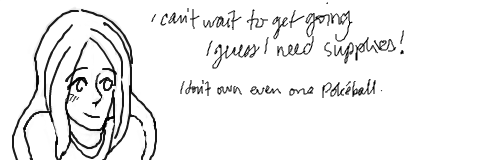 I can't wait to get going
I guess I need supplies!
I don't own even one Pokéball.